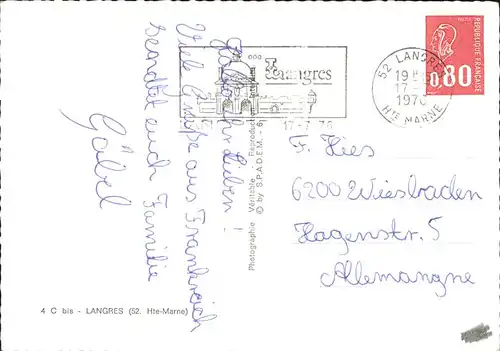 Hallo ihr Lieben!
Viele Grüße aus Frankreich
sendet euch Familie
Göbel
Langres
17-7-76
52 LANGRES
17-
HTE MARNE
REPUBLIQUE FRANÇAISE
0,80
F. Hies
6200 Wiesbaden
Hagenstr. 5
Allemangne
Photographie Véritable - Reproduction Interdite
© by S.P.A.D.E.M. - 6
4 C bis - LANGRES (52. Hte-Marne)